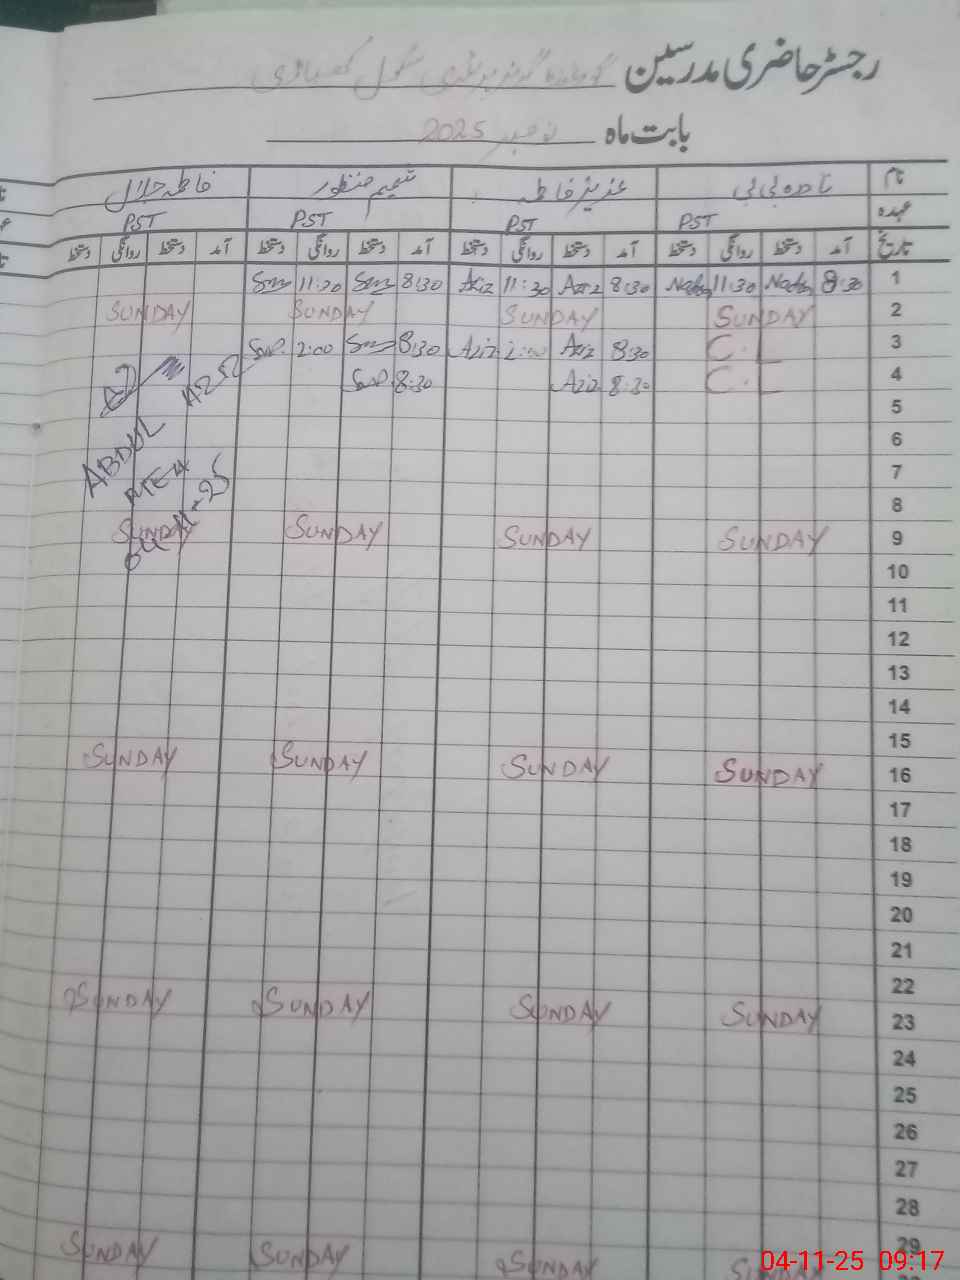 رجسٹر حاضری مدرسین گورنمنٹ گرلز پرائمری سکول
بابت ماہ نومبر 2025
نام نادرہ بی بی عزیز فاطمہ شمیم منظور فاطمہ جلال
عہدہ PST PST PST PST
تاریخ آمد دستخط روانگی دستخط آمد دستخط روانگی دستخط آمد دستخط روانگی دستخط آمد دستخط روانگی دستخط
1 8:30 11:30 8:30 Aziz 11:30 Aziz 8:30 11:30
2 SUNDAY SUNDAY SUNDAY SUNDAY
3 C.L 8:30 Aziz 2:00 Aziz 8:30 2:00
4 C.L 8:30 Aziz 8:30
5
6
7
8
9 SUNDAY SUNDAY SUNDAY SUNDAY
ABDUL
04-11-25
10
11
12
13
14
15
16 SUNDAY SUNDAY SUNDAY SUNDAY
17
18
19
20
21
22
23 SUNDAY SUNDAY SUNDAY SUNDAY
24
25
26
27
28
29
SUNDAY SUNDAY SUNDAY SUNDAY
04-11-25 09:17